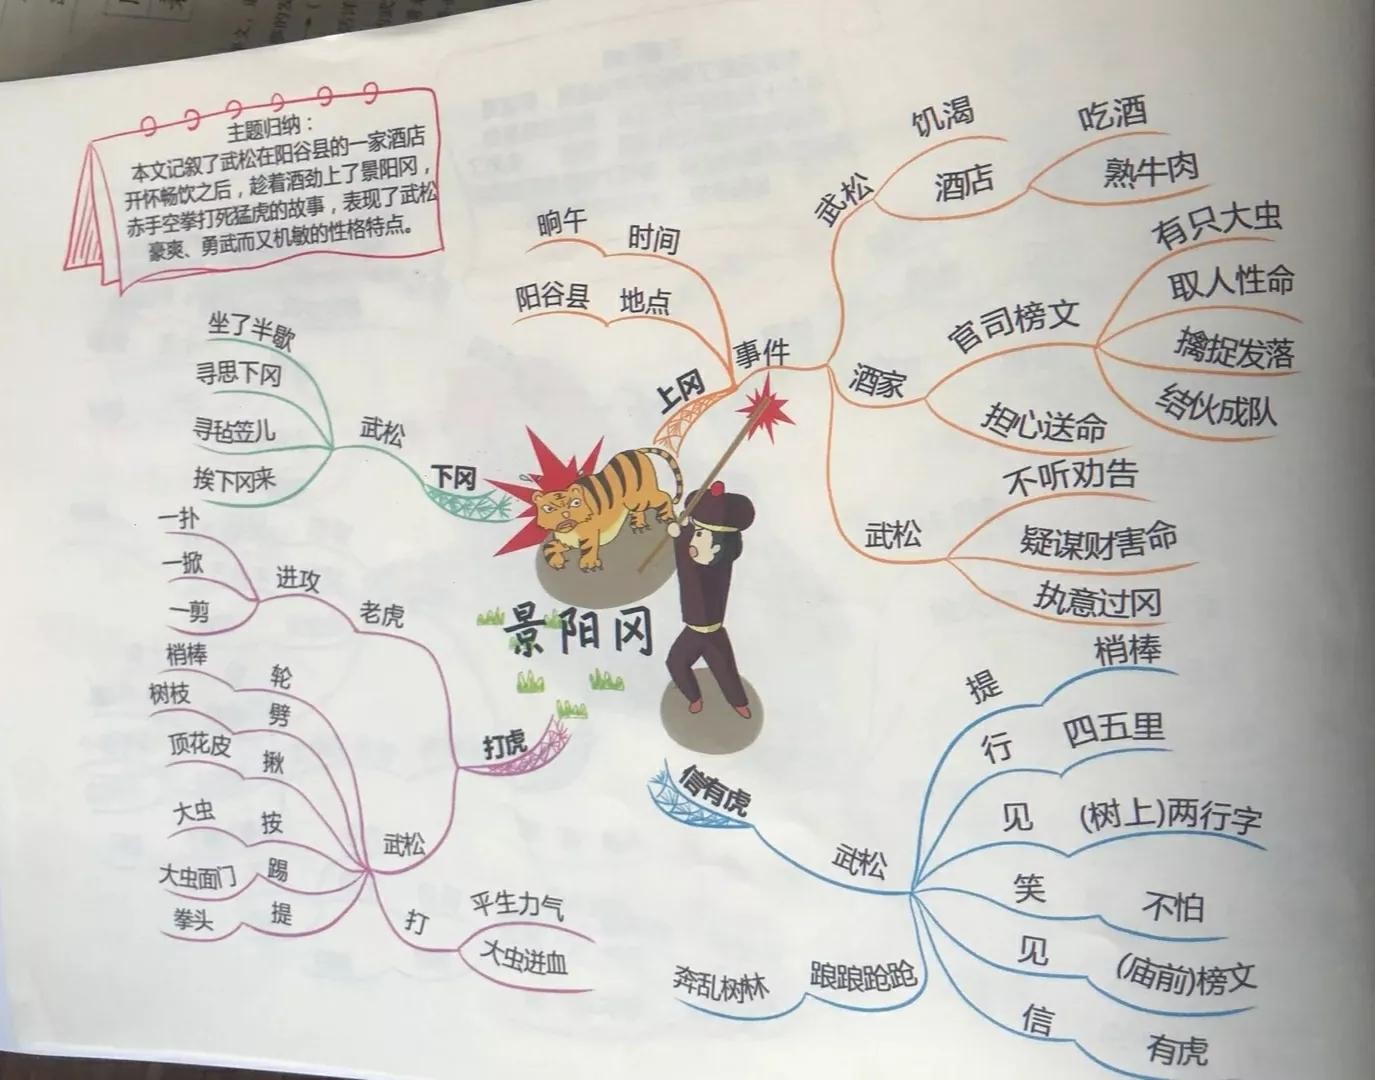 主题归纳：
本文记叙了武松在阳谷县的一家酒店
开怀畅饮之后，趁着酒劲上了景阳冈，
赤手空拳打死猛虎的故事，表现了武松
豪爽、勇武而又机敏的性格特点。
景阳冈
上冈
事件
时间
晌午
地点
阳谷县
武松
饥渴
酒店
吃酒
熟牛肉
酒家
官司榜文
有只大虫
取人性命
擒捉发落
结伙成队
担心送命
武松
不听劝告
疑谋财害命
执意过冈
信有虎
武松
提
梢棒
行
四五里
见
(树上)两行字
笑
不怕
见
(庙前)榜文
信
有虎
踉踉跄跄
奔乱树林
打虎
老虎
进攻
一扑
一掀
一剪
武松
轮
梢棒
劈
树枝
揪
顶花皮
按
大虫
踢
大虫面门
提
拳头
打
平生力气
大虫迸血
下冈
武松
坐了半歇
寻思下冈
寻毡笠儿
挨下冈来